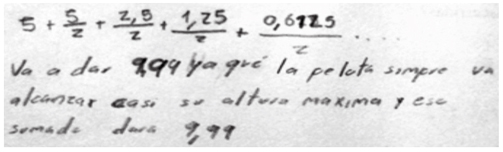 5 + 5/2 + 2,5/2 + 1,25/2 + 0,6125/2 ....
Va a dar 9,99 ya que la pelota simpre va
alcanzar casi su altura maxima y eso
sumado dara 9,99